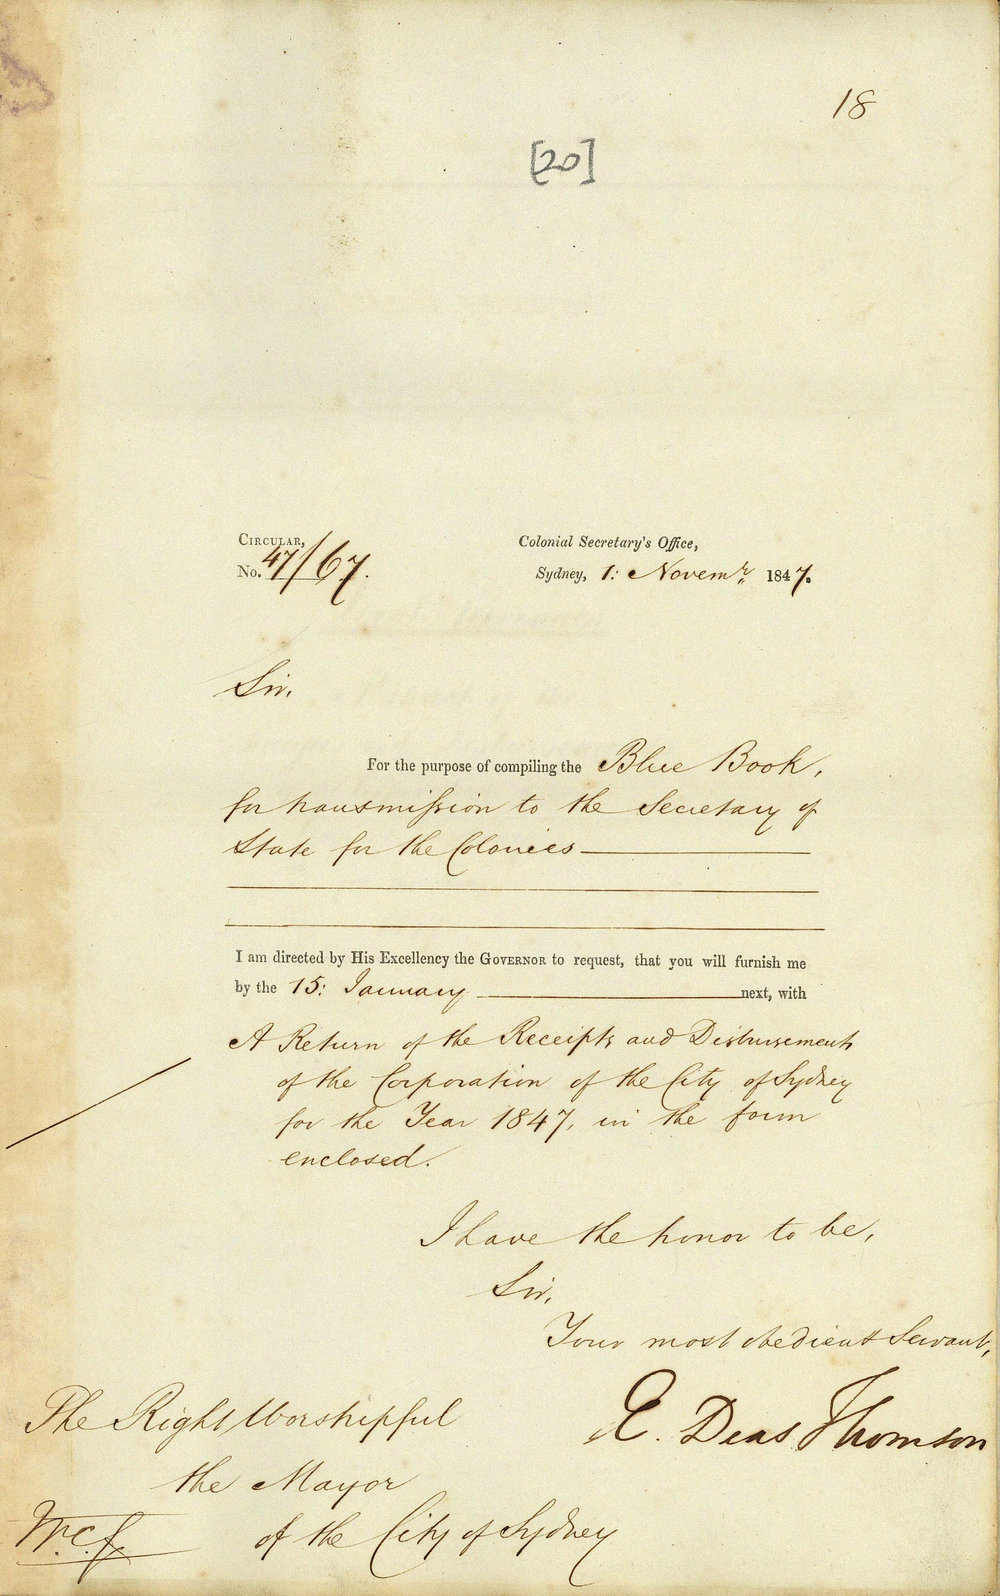 18
[20]
CIRCULAR,
No. 47/67.
Colonial Secretary's Office,
Sydney, 1: Novemr. 1847.
Sir,
For the purpose of compiling the Blue Book,
for transmission to the Secretary of
State for the Colonies
I am directed by His Excellency the GOVERNOR to request, that you will furnish me
by the 15: January next, with
A Return of the Receipts and Disbursements
of the Corporation of the City of Sydney
for the Year 1847, in the form
enclosed.
I have the honor to be,
Sir,
Your most obedient Servant,
E. Deas Thomson
The Right Worshipful
the Mayor
of the City of Sydney